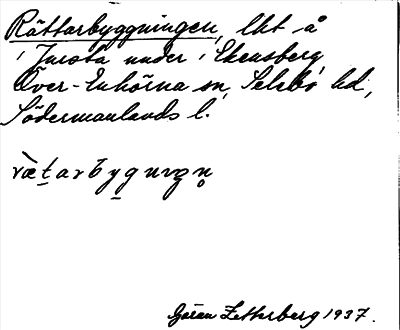 Rättarbyggningen, lht å
i Jursta under i Ekensberg
Över-Enhörna sn, Selebo hd,
Södermanlands l.
ræt̲arby̲gnɩŋn̥
Gösta Zetterberg 1937.